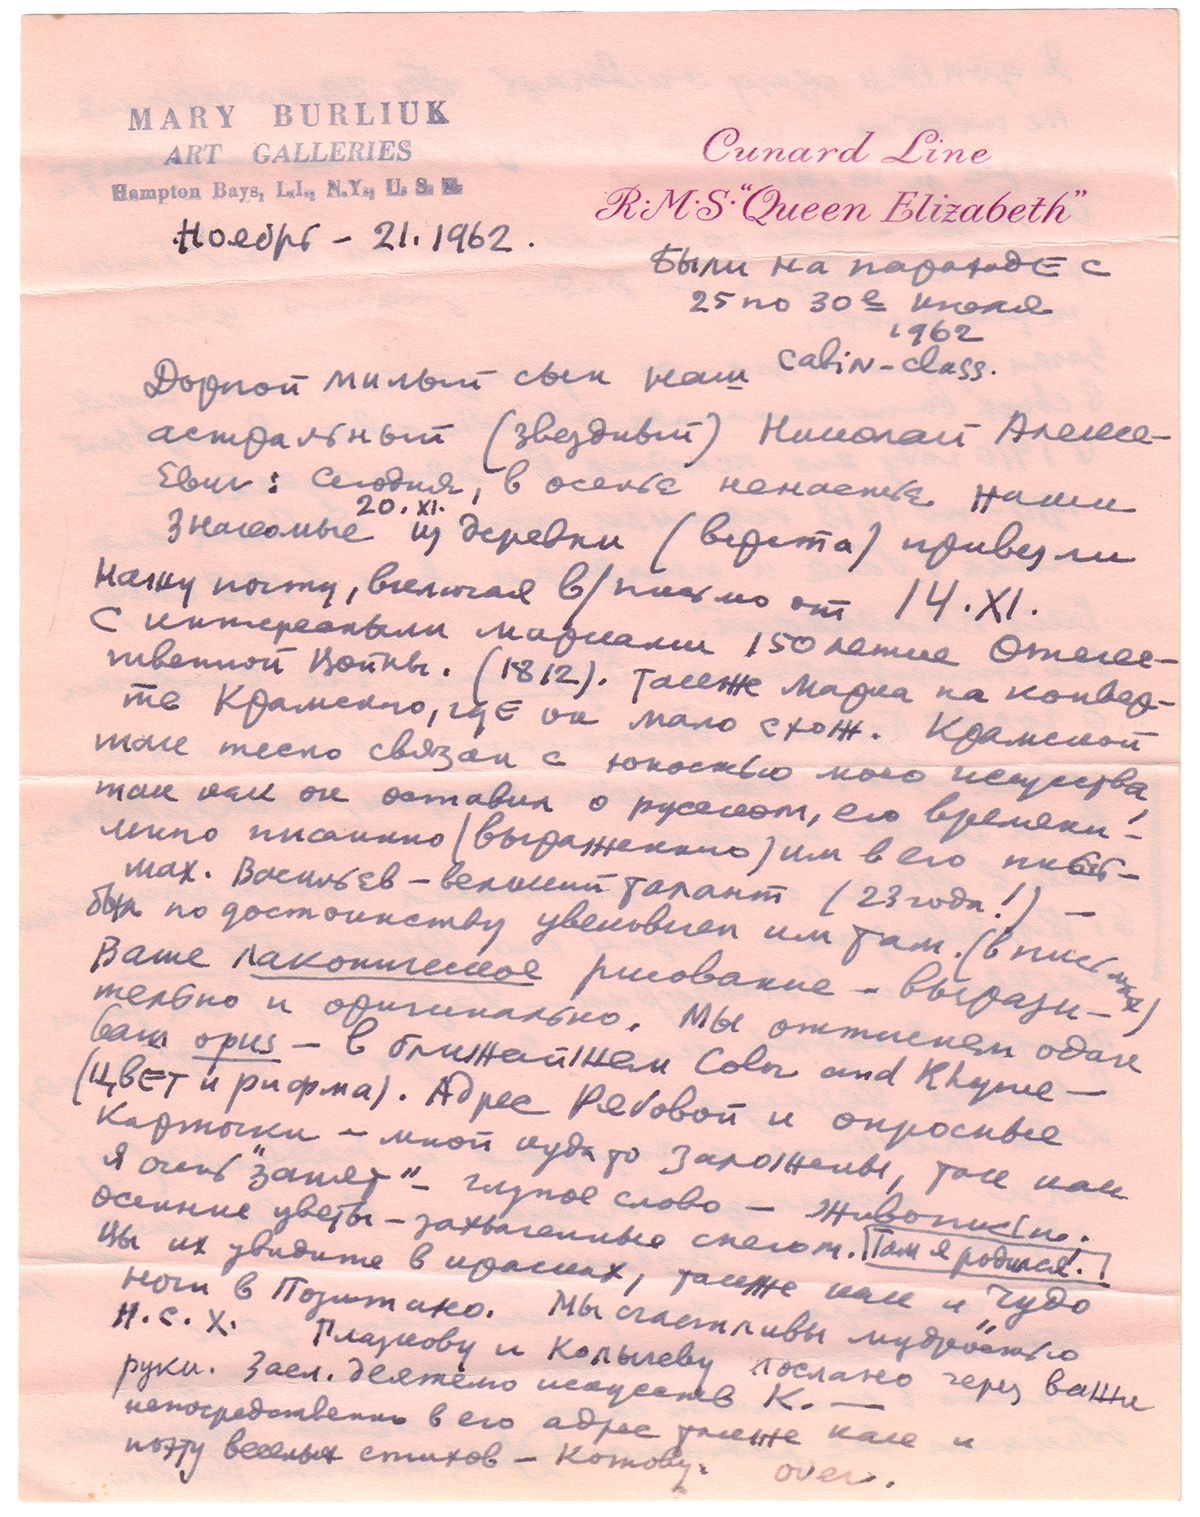 MARY BURLIUK
ART GALLERIES
Hampton Bays, L.I., N.Y., U. S. A.
Cunard Line
R·M·S·"Queen Elizabeth"
Ноябрь – 21. 1962.
Были на пароходе с
25 по 30е июля
1962
cabin-class.
Дорогой милый сын наш
астральный (звездный) Николай Алексе-
евич: Сегодня, в осенье ненастье наши
20.XI.
знакомые из деревки (верста) привезли
нашу почту, включая в/письмо от 14.XI.
с интересными марками 150 летие Отечес-
твенной Войны. (1812). Также марка на конвер-
те Крамского, где он мало схож. Крамской
так тесно связан с юностью моего искусства,
так как он оставил о русском, его времени!–
писанно (выраженного) им в его пись-
мах. Васильев – великий талант (23 года!) –
был по достоинству увековечен им там. (в письмах)
Ваше лаконическое рисование – вырази-
тельно и оригинально. Мы оттиснем один
ваш opus – в ближайшем Color and Rhyme –
(Цвет и рифма). Адрес Рябовой и опросные
карточки – мной куда то заложены, так как
я очень "занят" – глупое слово – живописью.
осенние цветы – захваченные снегом. Там я родился!
Вы их увидите в красках, также как и Чудо
ночи в Позитано. Мы счастливы мудростью
Н.С.Х. Глазкову и Колычеву послано через ваши
руки. Засл. деятелю искусств К. –
непосредственно в его адрес также как и
поэту веселых стихов – Котову. over.